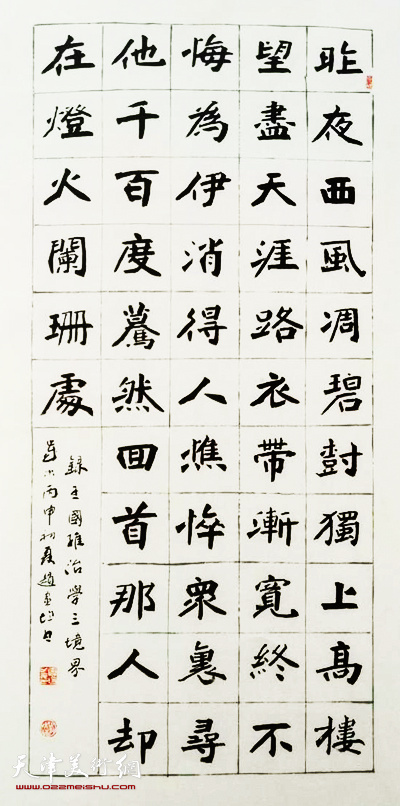 昨夜西風凋碧尌獨上高樓
望盡天涯路衣帶漸寬終不
悔為伊消得人憔悴眾裏尋
他千百度驀然回首那人却
在燈火闌珊處
錄王國維治學三境界
歲次丙申初夏趙
天津美術網
www.022meishu.com